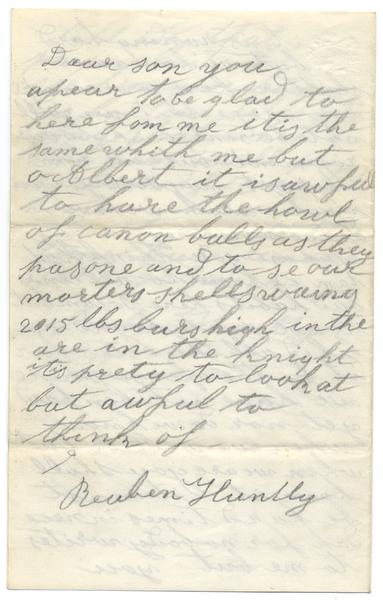 Dear son you
apear to be glad to
here fom me it is the
same whith me but
o Albert it is awful
to hare the howl
of canon balls as they
pas one and to se our
morters shells waing
2015 lbs burs high in the
are in the knight
it is prety to look at
but awful to
think of
Reuben Huntly